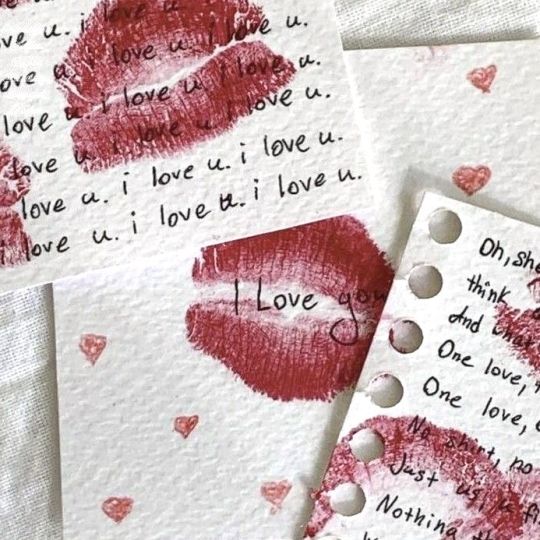 i love u
love u. i love u. i love u.
love u. i love u. i love u.
love u. i love u. i love u.
love u. i love u. i love u.
love u. i love u. i love u.
i love u. i love u. i love u.
I Love you
Oh, she
think
And what
One love,
One love,
No shirt, no
Just us, u
Nothing